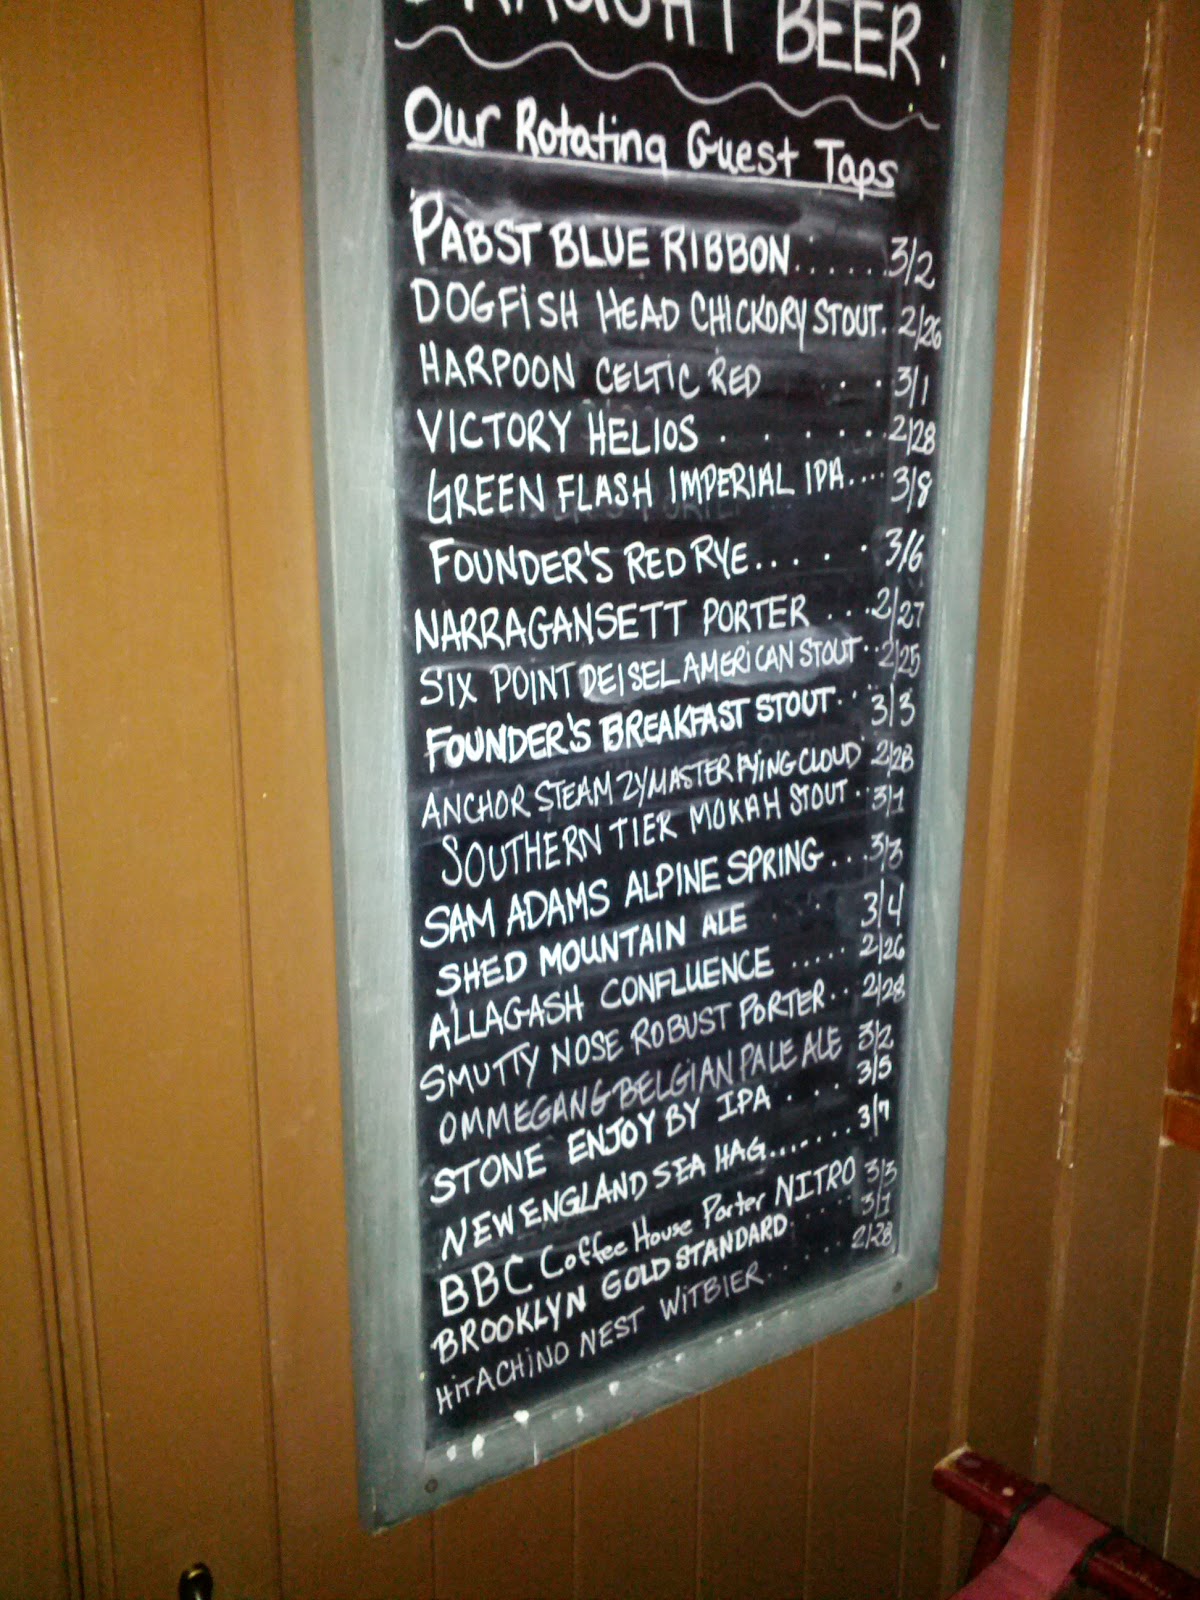 DRAUGHT BEER.
Our Rotating Guest Taps
PABST BLUE RIBBON......3/2
DOGFISH HEAD CHICKORY STOUT. 2/26
HARPOON CELTIC RED ... 3/1
VICTORY HELIOS.......2/28
GREEN FLASH IMPERIAL IPA.... 3/8
FOUNDER'S RED RYE..... 3/6
NARRAGANSETT PORTER ...2/27
SIX POINT DEISEL AMERICAN STOUT..2/25
FOUNDER'S BREAKFAST STOUT... 3/3
ANCHOR STEAM ZYMASTER FLYING CLOUD 2/28
SOUTHERN TIER MOKAH STOUT..3/1
SAM ADAMS ALPINE SPRING...3/3
SHED MOUNTAIN ALE ... 3/4
ALLAGASH CONFLUENCE ..... 2/26
SMUTTY NOSE ROBUST PORTER.. 2/28
OMMEGANG BELGIAN PALE ALE 3/2
STONE ENJOY BY IPA ... 3/5
NEW ENGLAND SEA HAG....... 3/7
BBC Coffee House Porter NITRO 3/3
BROOKLYN GOLD STANDARD.... 3/1
HITACHINO NEST WITBIER..... 2/28